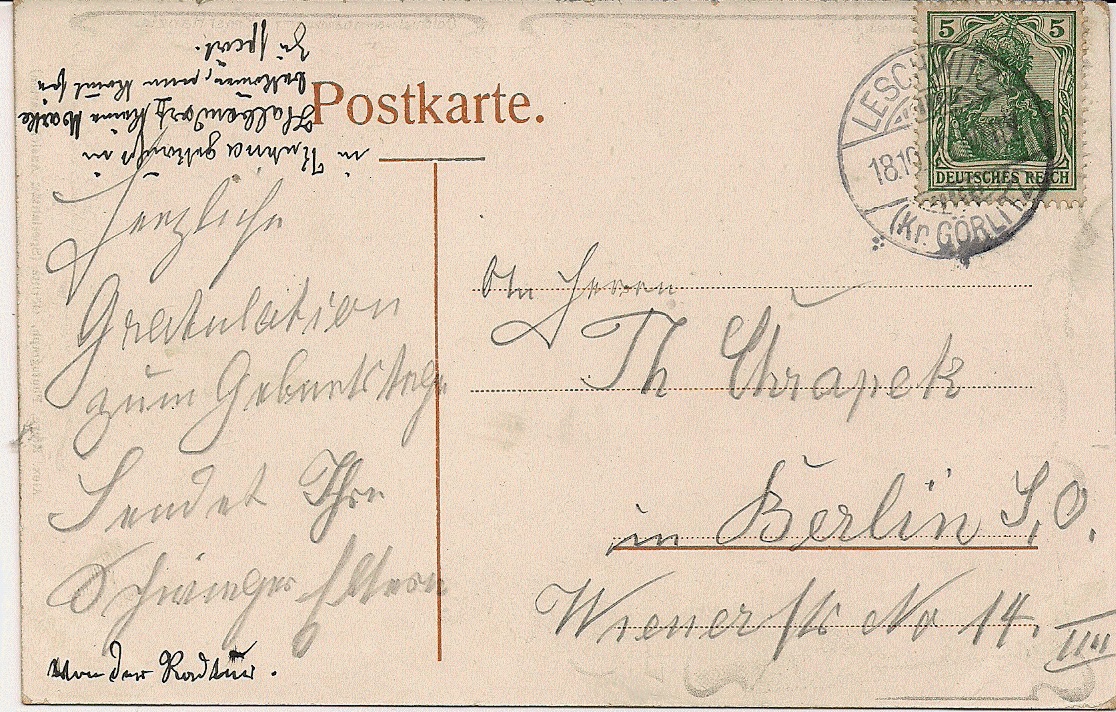 Postkarte.
5 5
DEUTSCHES REICH
LESCHWITZ
18.10
(Kr. GÖRLITZ)
in Kuhna gekauft in
Halbendorf keine Marke
bekommen, nun kommt sie
zu spät.
Herzliche
Gratulation
zum Geburtstage
Sendet Ihre
Schwieger Eltern
von der Radtour.
An Herrn
Th Chrapek
in Berlin S.O.
Wiener Str No 14. IIII